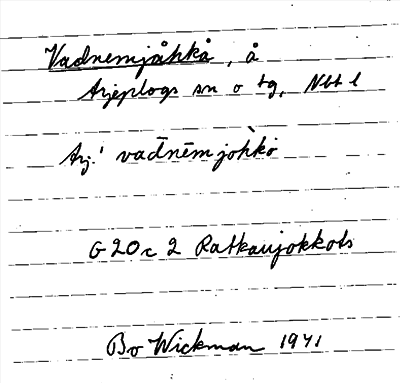 Vadnemjåhkå, å
Arjeplogs sn o tg, Nbt l
Arj.' vaďnēm johkò
G 20 c 2 Ratkaujokkots
Bo Wickman 1941